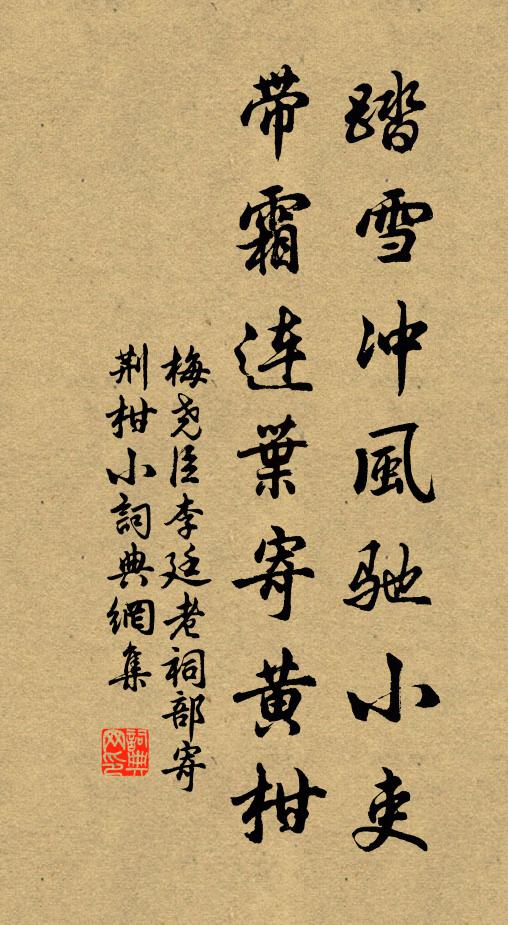 踏雪冲風馳小吏
带霜連葉寄黄柑
梅尧臣李廷老祠部寄
荆柑小詞典網集
詞典
网印